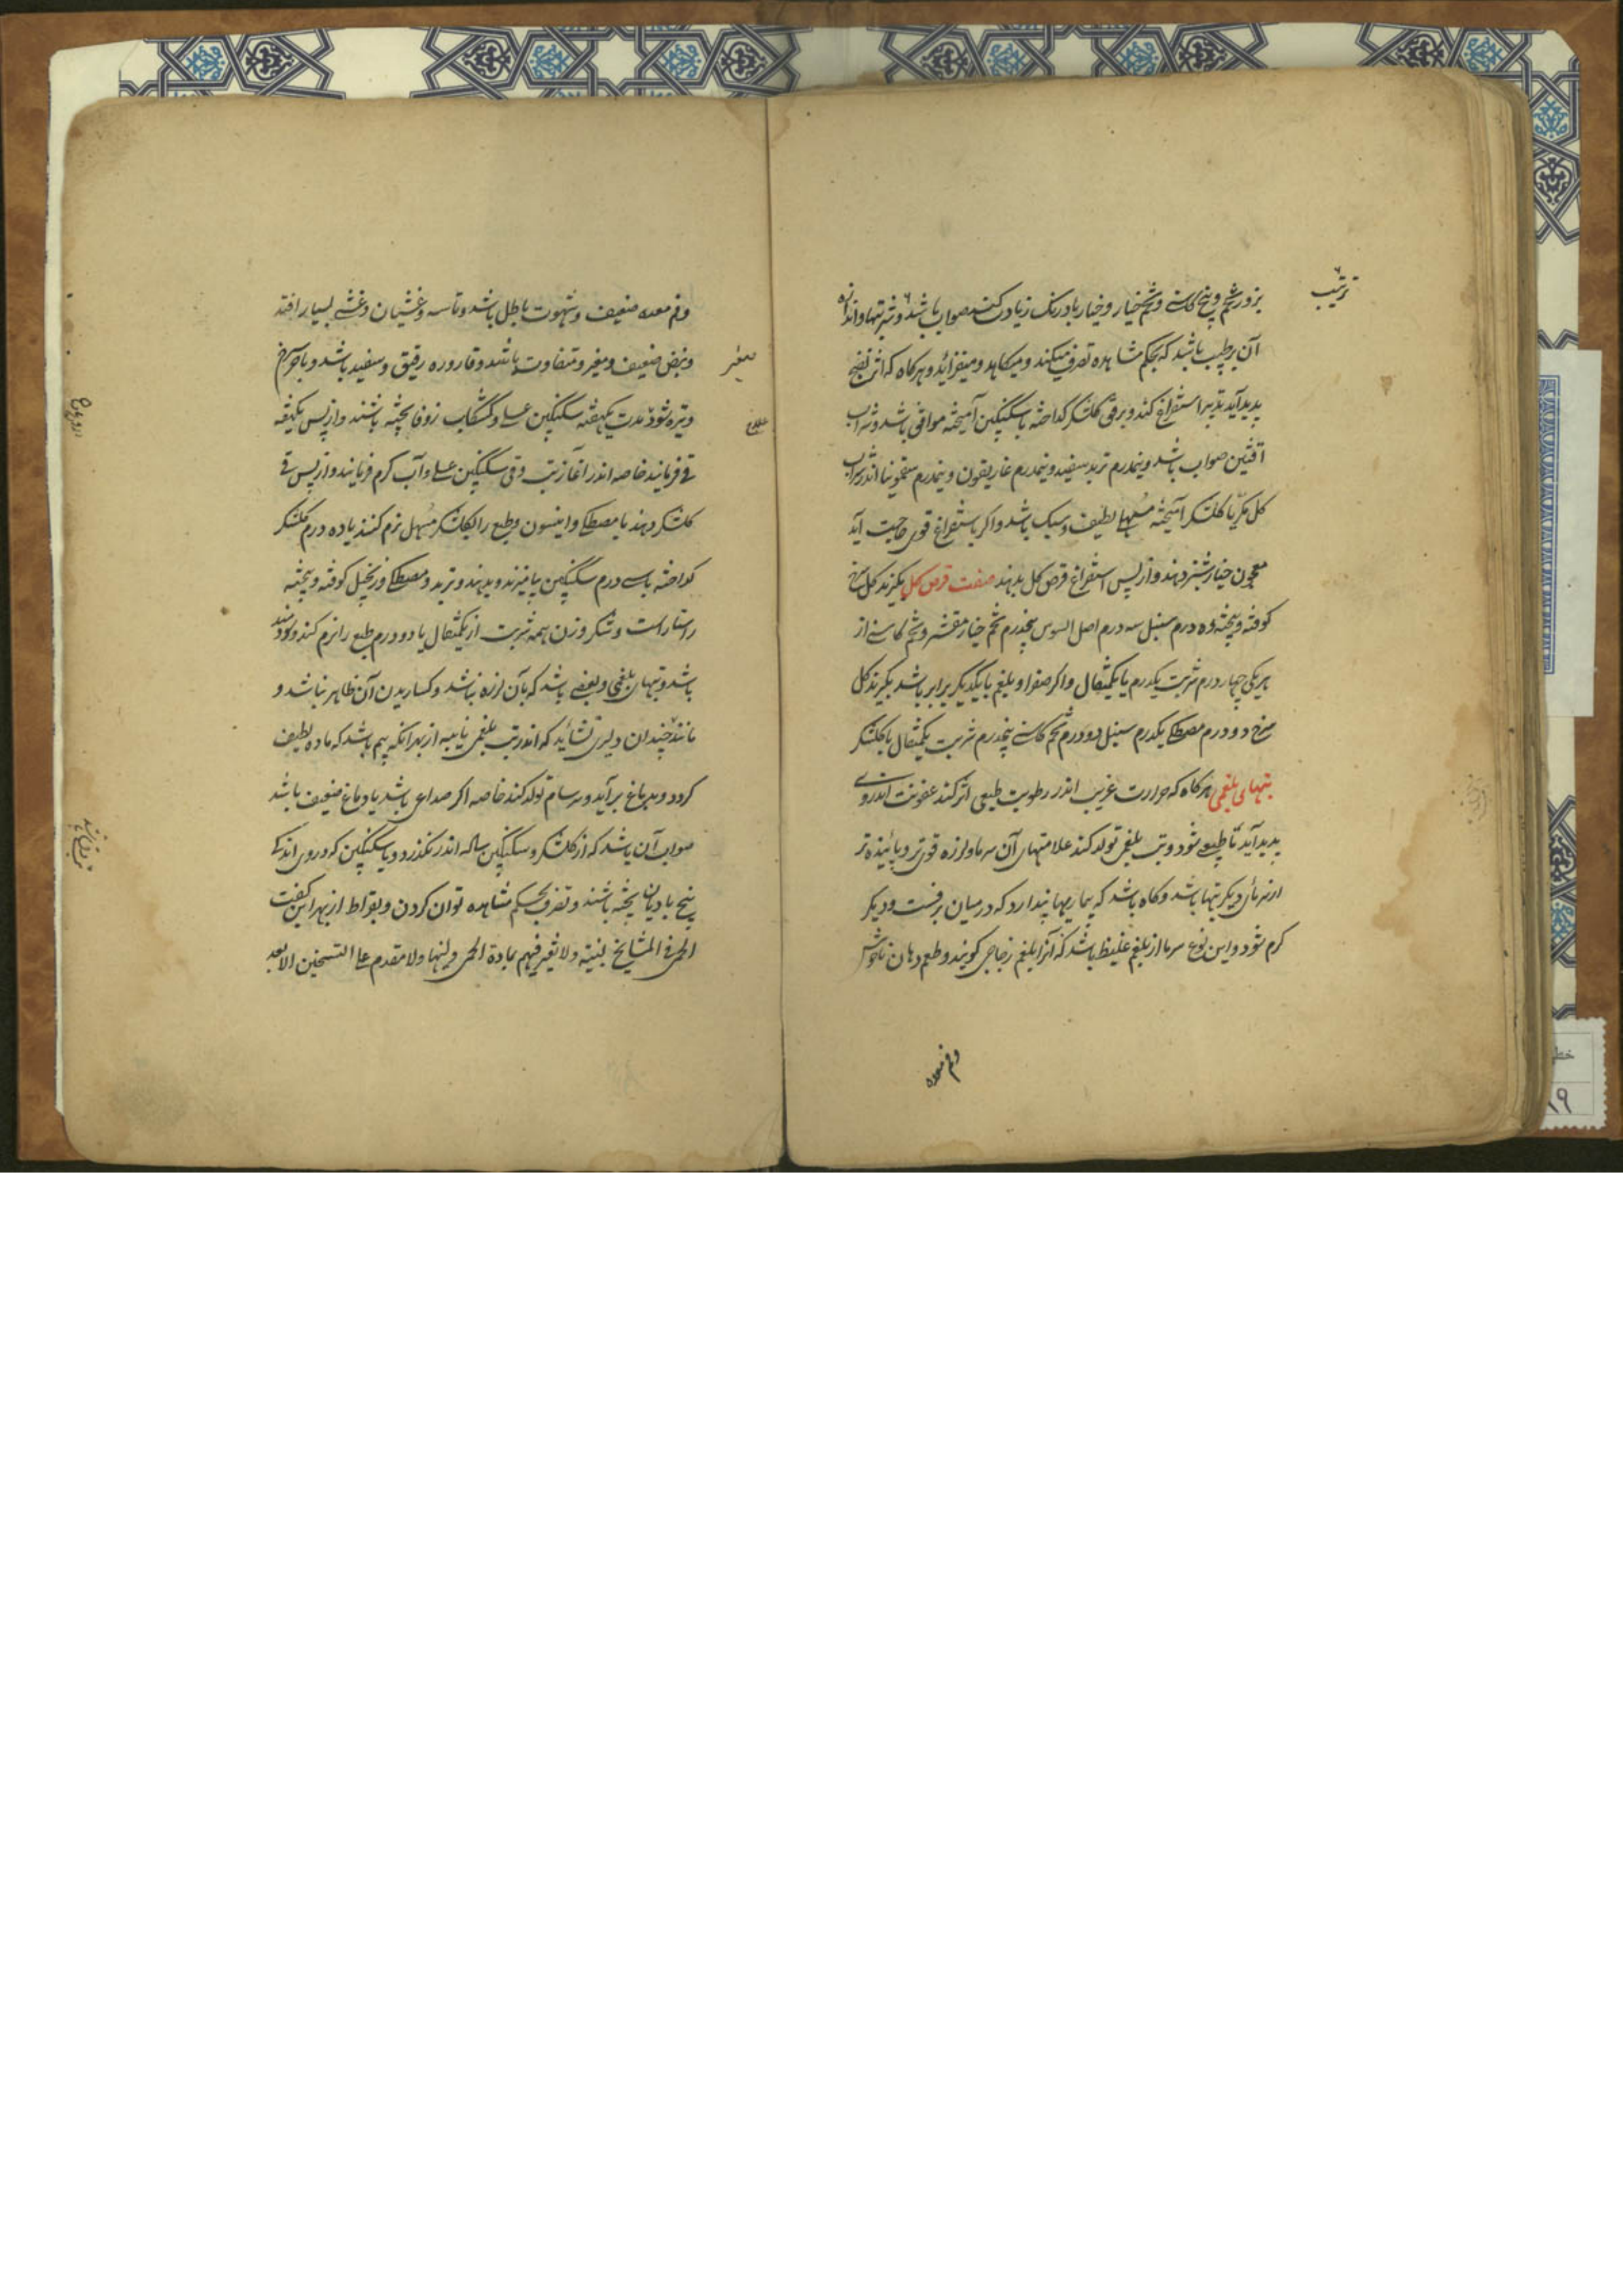 ترتیب
بزور تخم و بیخ کاسنی و تخم خیار و خیار بادرنک زیادت کنند صواب باشد و شربتها و اندازه
آن بر طبیب باشد که بحکم مشاهده تصرف میکند و میکاهد و میفزاید و هرکاه که اثر نضج
پدید آید تدبیر استفراغ کند و برفق کلشکر کداخته با سکنکبین آمیخته موافق باشد و شراب
افتین صواب باشد و نیمدرم تربد سفید و نیمدرم غاریقون و نیمدرم سقمونیا اندر شراب
کل مکرر یا کلشکر آمیخته مسهلی لطیف و سبک باشد و اکر باستفراغ قوی حاجت آید
معجون خیارشنبر دهند و از پس استفراغ قرص کل بدهند صفت قرص کل بکیرند کل سرخ
کوفته و بیخته ده درم سنبل سه درم اصل السوس پنجدرم تخم خیار مقشر و تخم کاسنی از
هر یکی چهار درم شربت یکدرم یا یکمثقال و اکر صفرا و بلغم با یکدیکر برابر باشد بکیرند کل
سرخ دو درم مصطکی یکدرم سنبل دو درم تخم کاسنی پنجدرم شربت یکمثقال با کلشکر
تبهای بلغمی هرکاه که حرارت غریب اندر رطوبت طبیعی اثر کند عفونت اندر وی
پدید آید نا طبیعی شود و تب بلغمی تولد کند علامتهای آن سرما و لرزه قوی تر و پائینده تر
از سرمای دیکر تبها باشد و کاه باشد که بیمار پندارد که در میان برفست و دیکر
کرم شود و این نوع سرما از بلغم غلیظ باشد که آنرا بلغم زجاجی کویند و طعم دهان ناخوش
و فم معده
و فم معده ضعیف و شهوت باطل باشد و تاسه و غشیان و غشی بسیار افتد
و نبض ضعیف و صغیر و متفاوت باشد و قاروره رقیق و سفید باشد و بآخر سرخ
صغیر
و تیره شود مدت یکهفته سکنکبین عسلی و کشکاب زوفا پخته باشند و از پس یکهفته
علاج
قی فرمایند خاصه اندر آغاز تب و قی سکنکبین عسلی و آب کرم فرمایند و از پس قی
کلشکر دهند با مصطکی و انیسون و طبع را بکلشکر مسهل نرم کنند یا ده درم کلشکر
کداخته با سی درم سکنکبین بیامیزند و بدهند و تربد و مصطکی و زنجبیل کوفته و بیخته
راستاراست و شکر وزن همه شربت از یکمثقال یا دو درم طبع را نرم کند و سودمند
باشد و تبهای بلغمی و بعضی باشد که بآن لرزه نباشد و کساریدن آن ظاهر نباشد و
مانند چندان دلیری نشاید که اندر تب بلغمی نایبه از بهر آنکه بیم باشد که ماده لطیف
کردد و بدماغ برآید و سرسام تولد کند خاصه اکر صداعی باشد یا دماغ ضعیف باشد
صواب آن باشد که از کلشکر و سکنکبین ساله اندر نکذرد و یا سکنکبین که در وی اندکی
بیخ بادیان پخته باشند و تصرف بحکم مشاهده توان کردن و بقراط از بهر این کفت
الحمی فی المشایخ